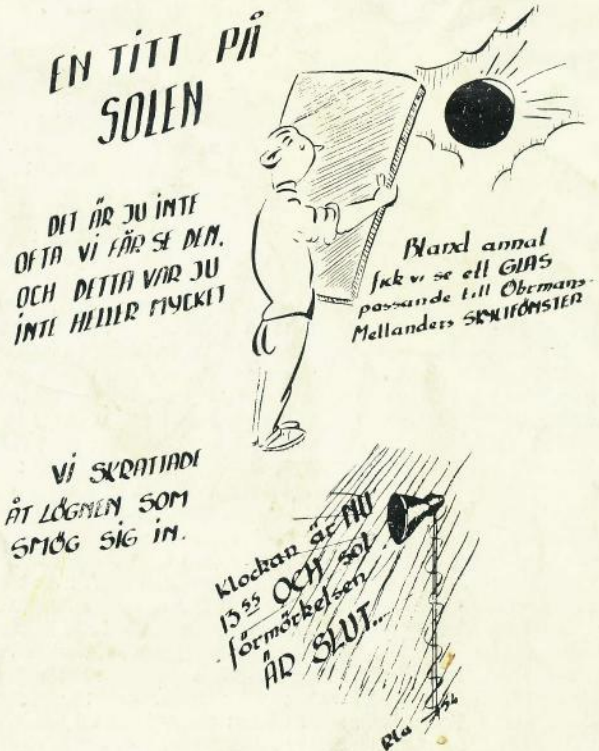 EN TITT PÅ
SOLEN
DET ÄR JU INTE
OFTA VI FÅR SE DEN.
OCH DETTA VAR JU
INTE HELLER MYCKET
Bland annat
fick vi se ett GLAS
passande till Öbrmans-
Mellanders SKYLTFÖNSTER
VI SKRATTADE
ÅT LÖGNEN SOM
SMÖG SIG IN.
Klockan är NU
13 55 OCH sol
förmörkelsen
ÄR SLUT...
RLa 54